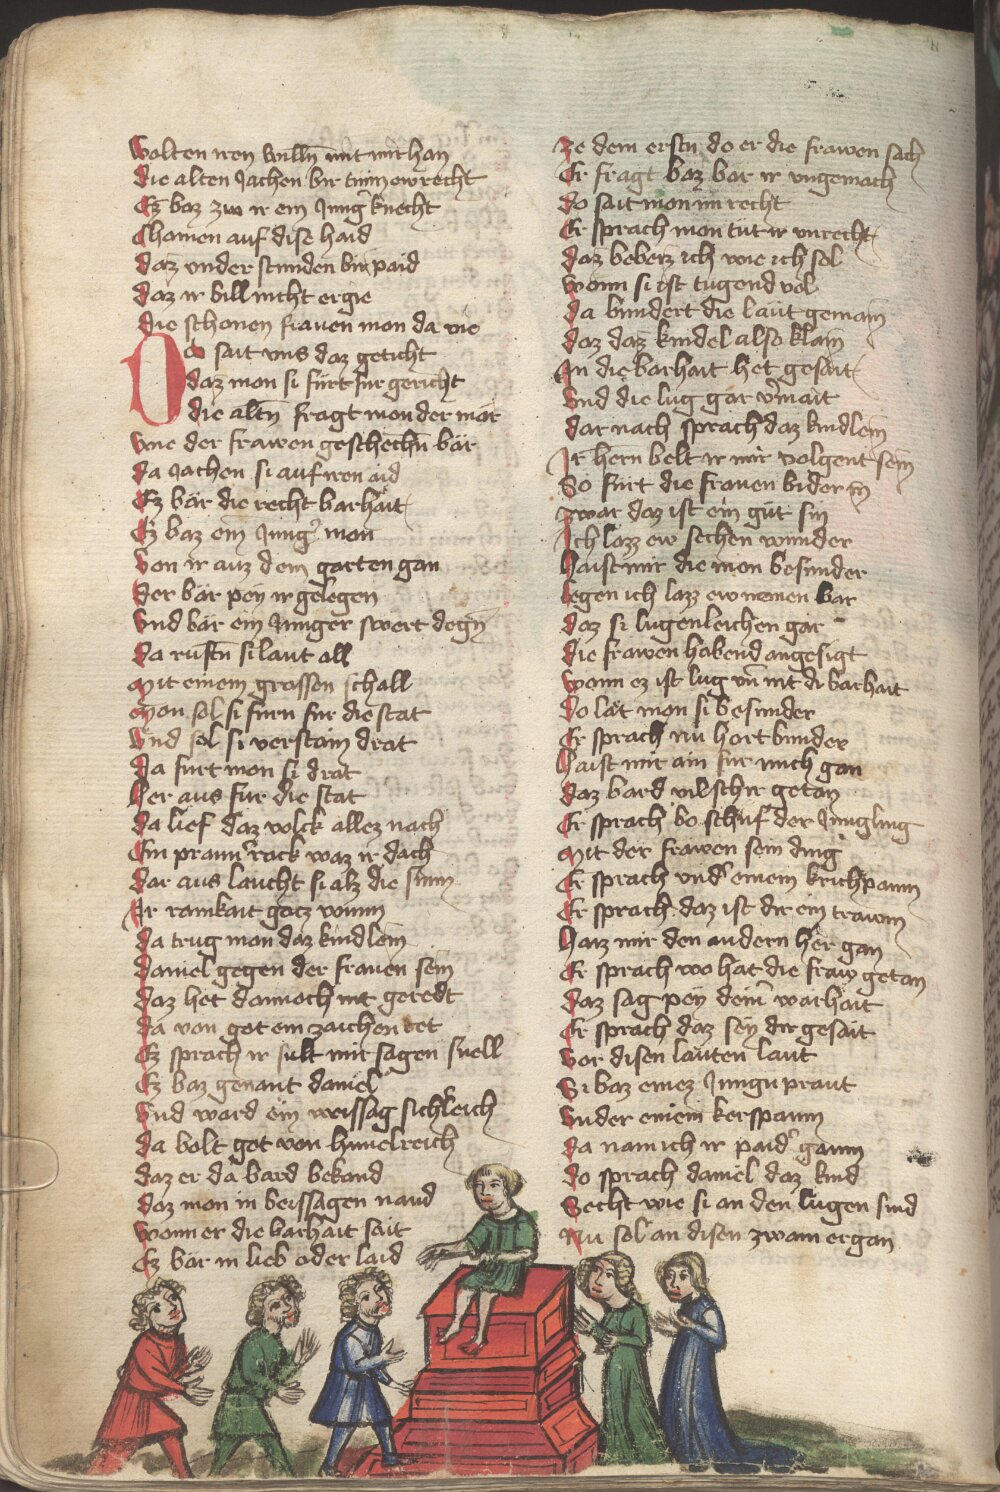 Wolten iren willn mit mir han
Die alten Jachen wir tuimen recht
Ez waz zw ir ein Jung' knecht
Chomen auf dise haid
Daz vnder stunden bir paid
Daz ir bill nicht ergie
Die schonen frauen mon da vie
Do sait vns daz geticht
Daz mon si furt fur gericht
Die altn fragt mon der mär
Wie der frawen geschechn bär
Da Jachen si auf iren aid
Ez bär die recht barhäit
Ez baz ein Jung' mon
Von ir auz dem garten gan
Der bär pey ir gelegen
Vnd bär ein Junger swert degn
Da ruftn si laut all
Mit einem grossen schall
Mon sol si furn fur die stat
Vnd sol si verstain drat
Da furt mon si drat
Her aus fur die stat
Da lief daz volck allez nach
Ein praun' rock waz ir dach
Dar aus laucht si alz die sunn
Ir rainkait gotz wunn
Da trug mon daz kindlein
Daniel gegen der frauen sein
Daz het dannoch nit geredt
Da von got ein zaichen tet
Ez sprach ir sult mir sagen snell
Ez baz genant daniel
Vnd ward ein weissag sich'leich
Da bolt got von himelreich
Daz er da bard bekand
Daz mon in beissagen nand
Wonn er die barhait sait
Ez bär in lieb oder laid
Ze dem erstn do er die frawen sach
Er fragt baz bär ir vngemach
Do sait mon im recht
Er sprach mon tüt ir vnrecht
Daz beberz ich wie ich sol
Wonn si ist tugend vol
Da bundert die laüt gemain
Daz daz kindel also klain
In die barhait het gesait
Vnd die lug gar v'mait
Dar nach sprach daz kindlein
Ir hern belt ir mir volgent sein
So fürt die frauen bider in
Zwar daz ist ein güt sin
Ich lazz ew sechen wunder
Haist mir die mon besunder
Legen ich lazz ew nemen bar
Daz si lugenleichen gar
Die frawen habend angesigt
Wonn ez ist lug vn nit di barhait
Do lät mon si besunder
Er sprach nu hort bunder
Haist mir ain fur mich gan
Daz bard vil schir getan
Er sprach bo schuf der Jungling
Mit der frawen sein ding
Er sprach vnd' einem krichpaum
Er sprach daz ist dir ein traum
Haiz mir den andern her gan
Er sprach wo hat die fraw getan
Daz sag pey dein' warhäit
Er sprach daz sey dir gesait
Vor disen läuten laut
Si baz einez Jungn praut
Vnder einem kerspaum
Da nam ich ir paid' gaum
Do sprach daniel daz kind
Secht wie si an den lugen sind
Nu sol an disen zwain ergan